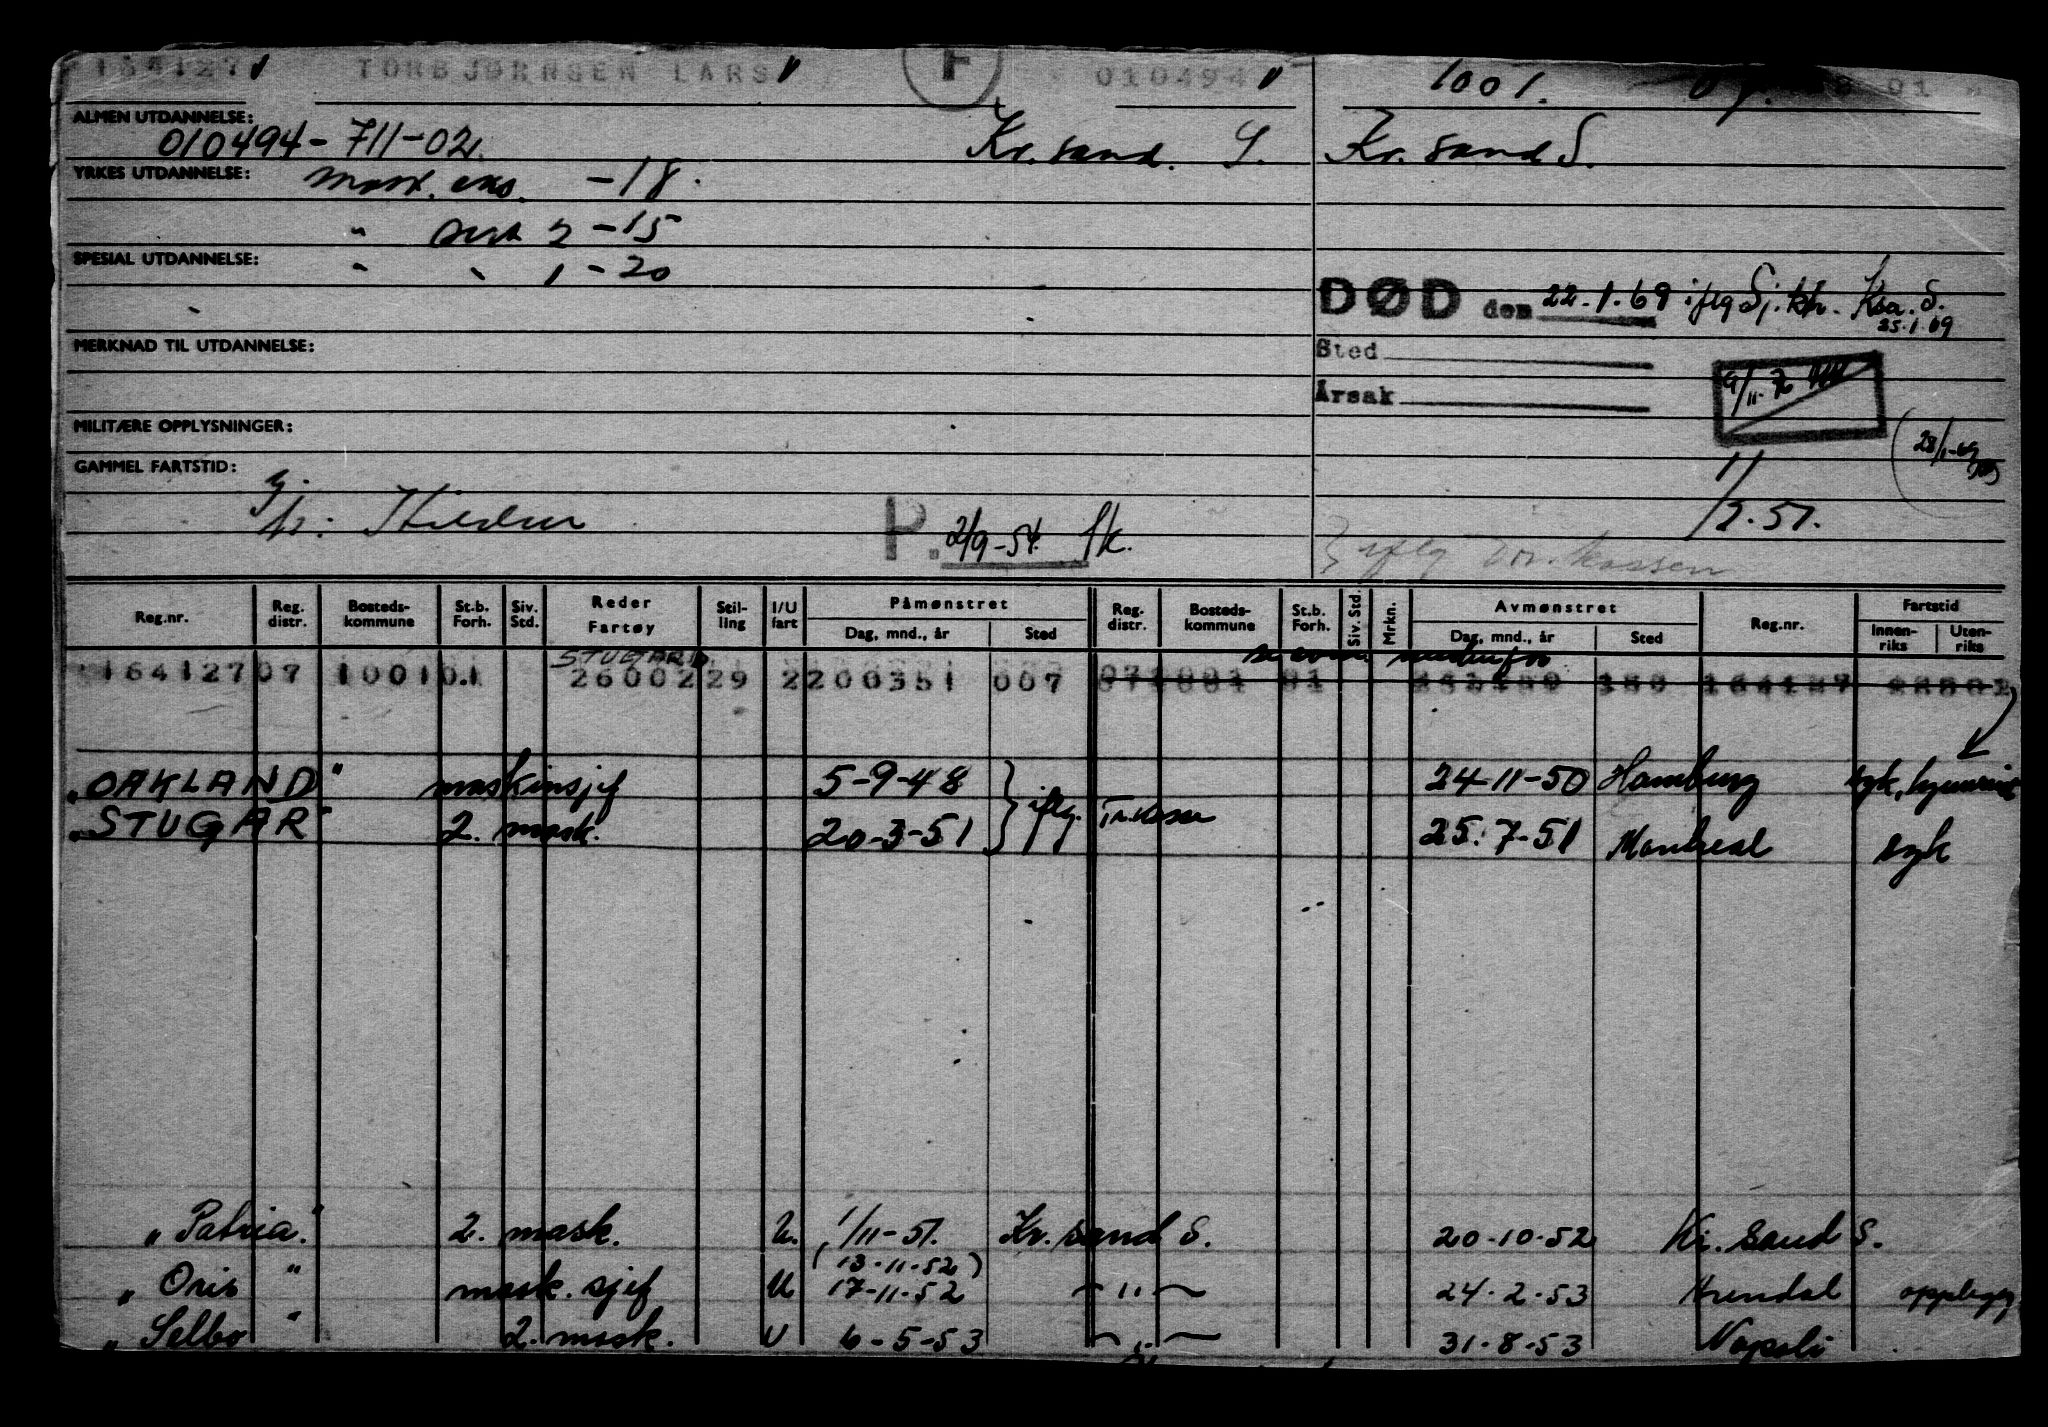 164127 TORBJØRNSEN LARS F 010494 1001. 07. 01
ALMEN UTDANNELSE:
010494-711-02. Kr.sand. S. Kr. sand S.
YRKES UTDANNELSE: mask. eks. -18.
" 2 -15
SPESIAL UTDANNELSE: " " 1 -20
DØD den 22.1.69 iflg Sj.ktr. Ksa. S.
25.1.69
Sted
MERKNAD TIL UTDANNELSE:
9/11-76
Årsak
MILITÆRE OPPLYSNINGER:
28/1-69
GAMMEL FARTSTID:
P. 2/9-54.
11/2.51.
iflg
Reg.nr. Reg. distr. Bosteds-kommune St.b. Forh. Siv. Std. Reder Fartøy Stil-ling I/U fart Påmønstret Dag, mnd., år Sted Reg. distr. Bosteds-kommune St.b. Forh. Siv. Std. Mrkn. Avmønstret Dag, mnd., år Sted Reg.nr. Fartstid Innen-riks Uten-riks
STUGARD
164127 07 1001 01 26002 29 2 200351 007
"OAKLAND" maskinsjef 5-9-48 iflg. 24-11-50 Hamburg syk,
"STUGAR" 2. mask. 20-3-51 25.7-51 Montreal syk
"Patria." 2. mask. U. 1/11-51. Kr. sand S. 20-10-52 Kr. sand S.
(13-11-52)
"Oris" mask. sjef U 17-11-52 — " — 24.2-53 Arendal opplegg
"Selbo" 2. mask. U 6-5-53 — " — 31-8-53 Napoli